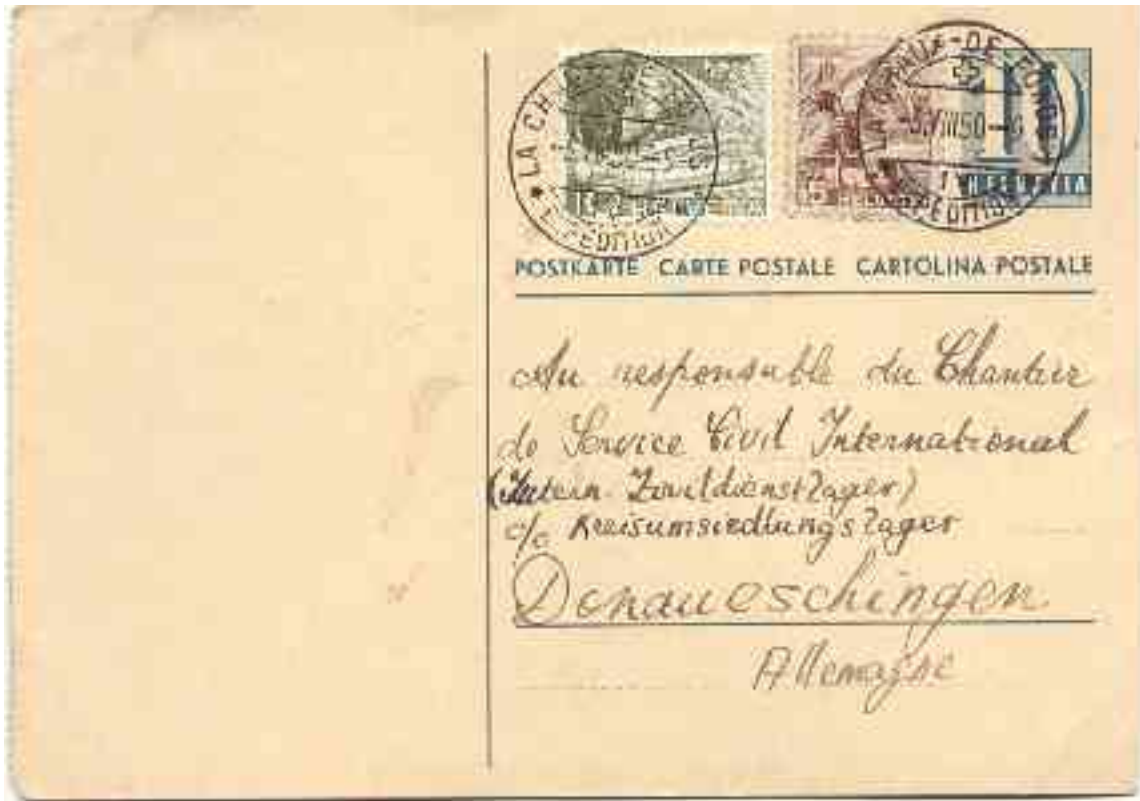 LA CHAUX-DE-FONDS
VIII50
10
HELVETIA
EXPEDITION
LA CH
EXPEDITION
POSTKARTE CARTE POSTALE CARTOLINA POSTALE
Au responsable du Chantier
de Service Civil International
(Intern. Zivildienstlager)
c/o Kreisumsiedlungslager
Donaueschingen
Allemagne